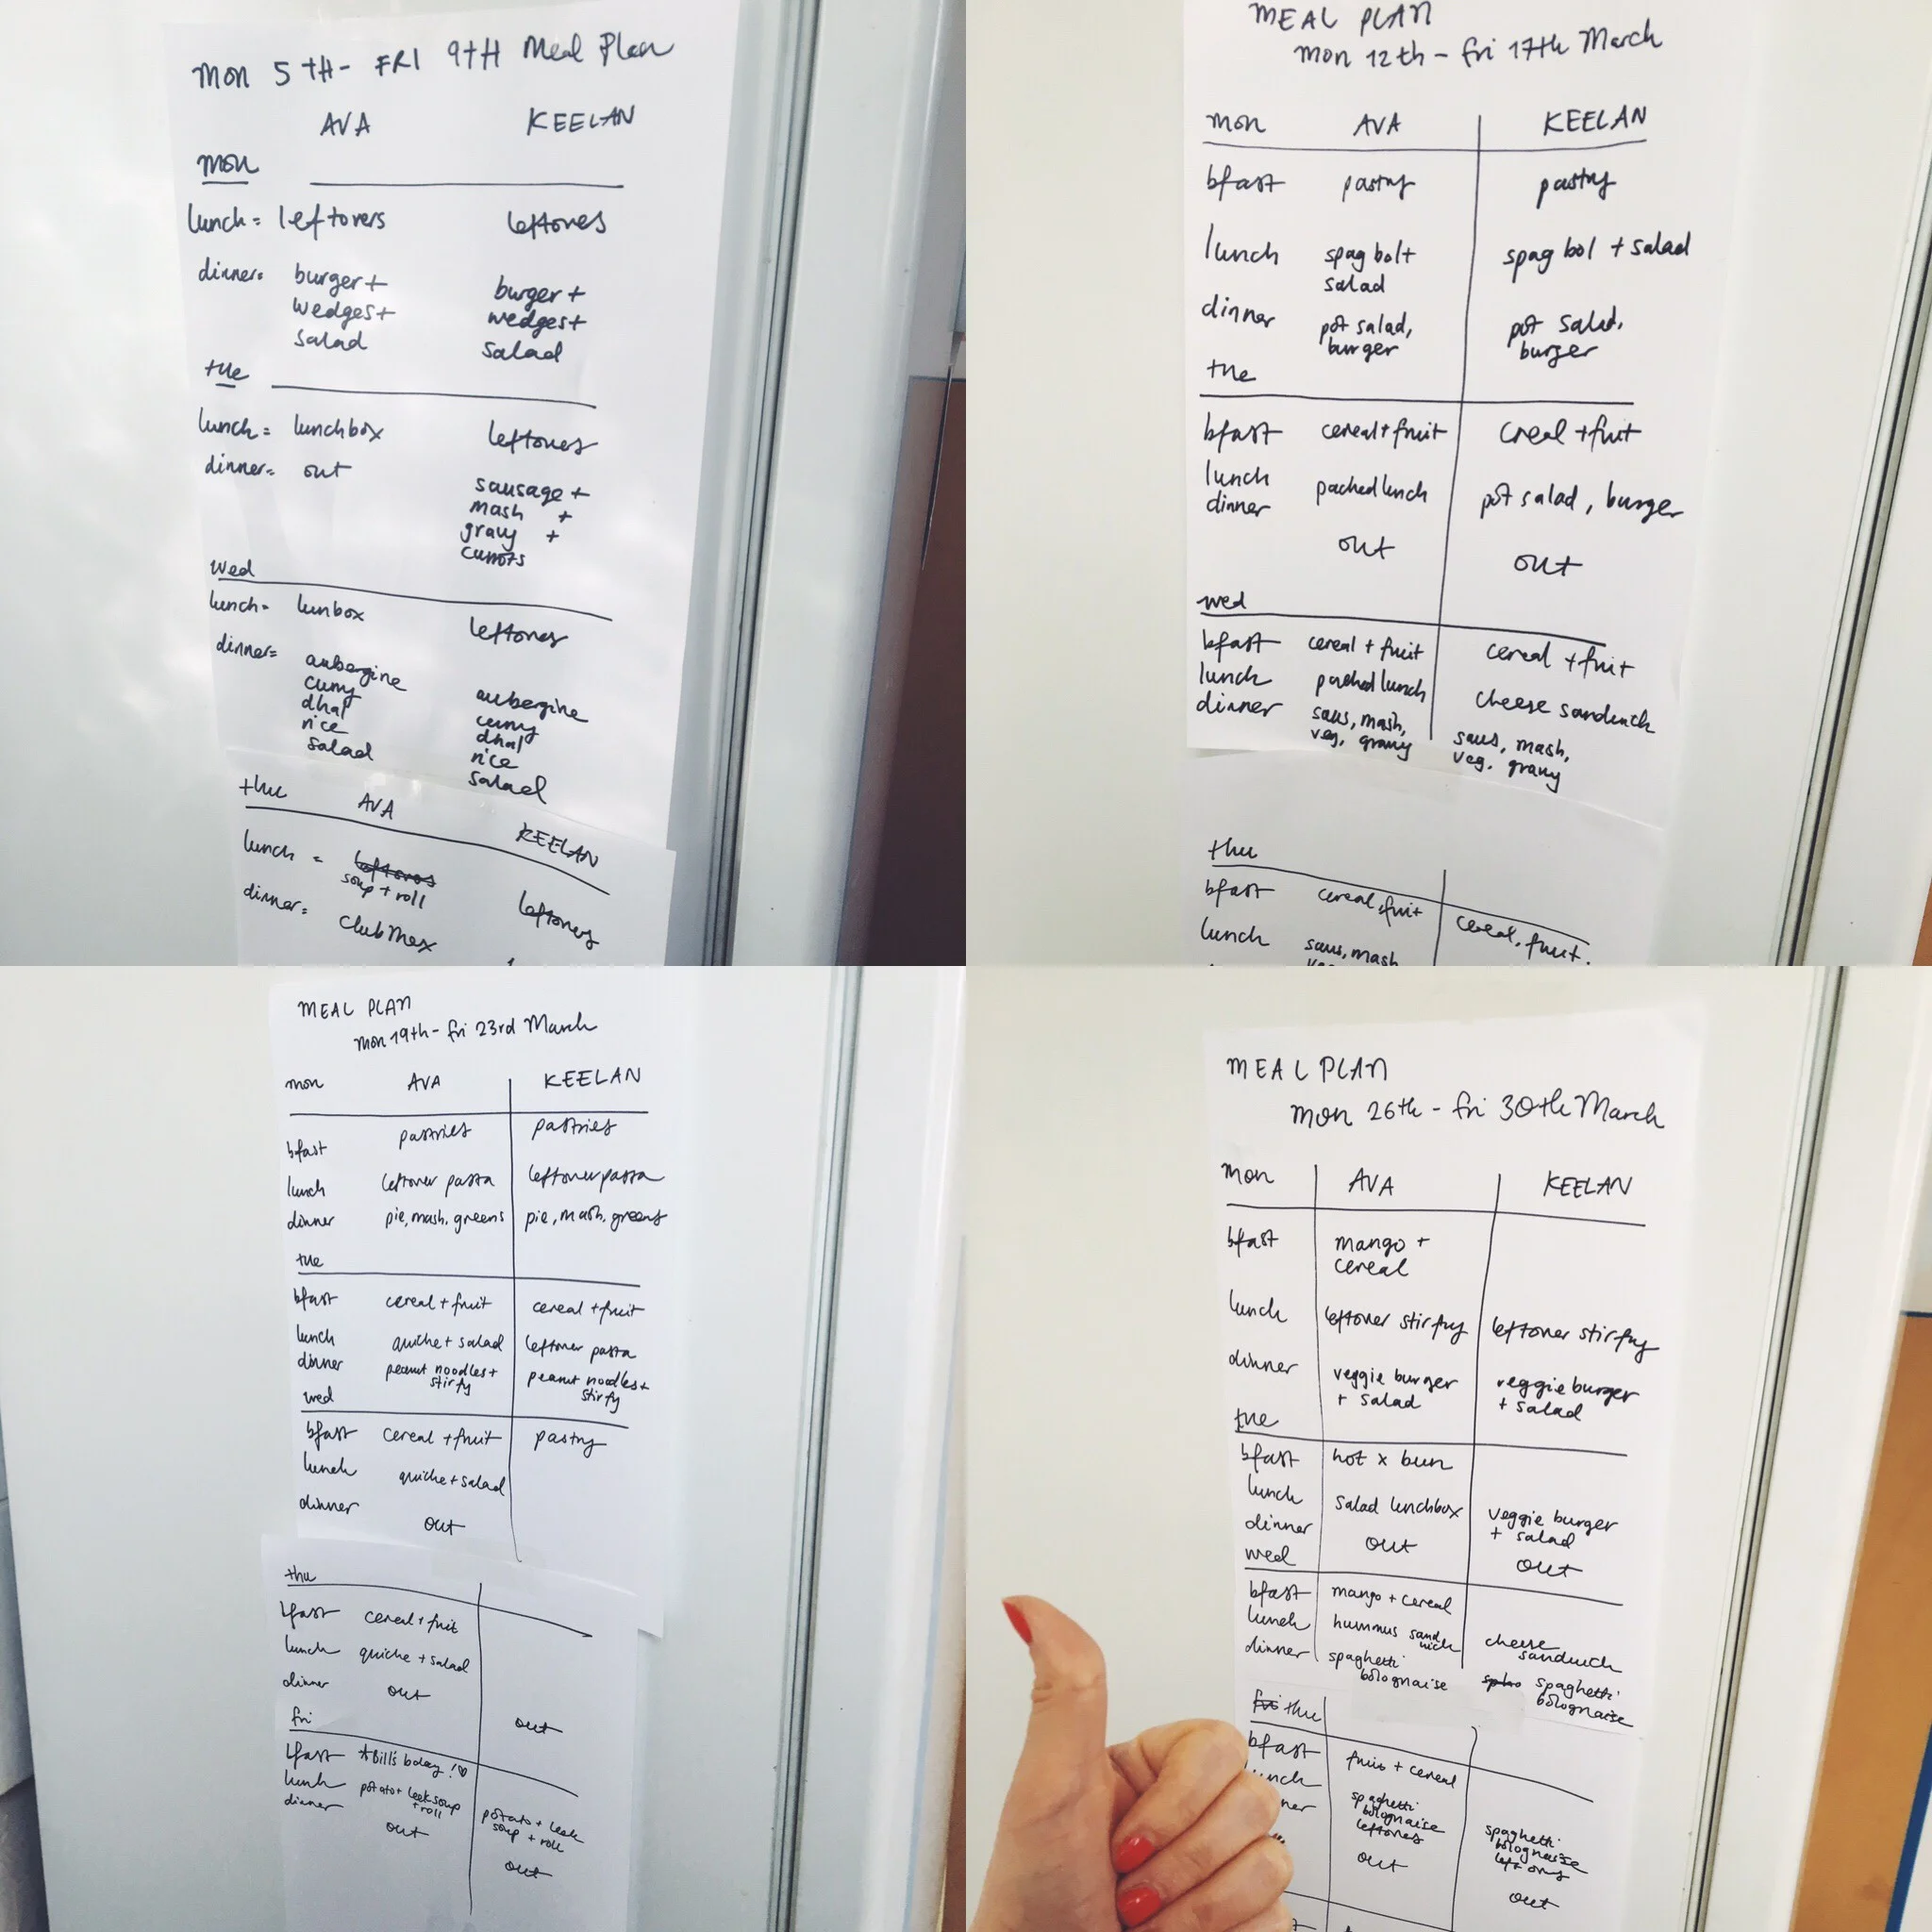 mon 5TH - FRI 9TH Meal Plan
AVA KEELAN
mon
lunch = leftovers leftoves
dinner= burger + burger +
wedges + wedges +
salad salad
tue
lunch = lunchbox leftoves
dinner= out sausage +
mash +
gravy +
carrots
wed
lunch = lunbox leftoves
dinner= aubergine aubergine
curry curry
dhal dhal
rice rice
salad salad
thu AVA KEELAN
lunch = leftoves leftoves
soup + roll
dinner= Club Mex
MEAL PLAN
mon 12th - fri 17th March
mon AVA KEELAN
bfast pastry pastry
lunch spag bol + spag bol + salad
salad
dinner pot salad, pot salad,
burger burger
tue
bfast cereal + fruit creal + fuit
lunch packed lunch pot salad, burger
dinner
out out
wed
bfast cereal + fruit cereal + fruit
lunch packed lunch cheese sandwich
dinner saus, mash, saus, mash,
veg, gravy veg. gravy
thu
bfast cereal, fruit cereal, fruit.
lunch saus, mash
MEAL PLAN
mon 19th - fri 23rd March
mon AVA KEELAN
bfast pastries pastries
lunch leftover pasta leftover pasta
dinner pie, mash, greens pie, mash, greens
tue
bfast cereal + fruit cereal + fruit
lunch quiche + salad leftover pasta
dinner peanut noodles + peanut noodles +
stirfy stirfy
wed
bfast cereal + fruit pastry
lunch quiche + salad
dinner
out
thu
bfast cereal + fruit
lunch quiche + salad
dinner out
out
fri
bfast *Bill's bday!♡
lunch potato + leek soup potato + leek
+ roll soup + roll
dinner out out
MEAL PLAN
mon 26th - fri 30th March
mon AVA KEELAN
bfast mango +
cereal
lunch leftover stirfry leftover stirfry
dinner veggie burger veggie burger
+ salad + salad
tue
bfast hot x bun
lunch salad lunchbox veggie burger
+ salad
dinner out out
wed
bfast mango + cereal
lunch hummus sand cheese
wich sandwich
dinner spaghetti spaghetti
bolognaise bolognaise
fri thu
bfast fruit + cereal
unch spaghetti spaghetti
bolognaise bolognaise
leftoves leftoves
ner out out